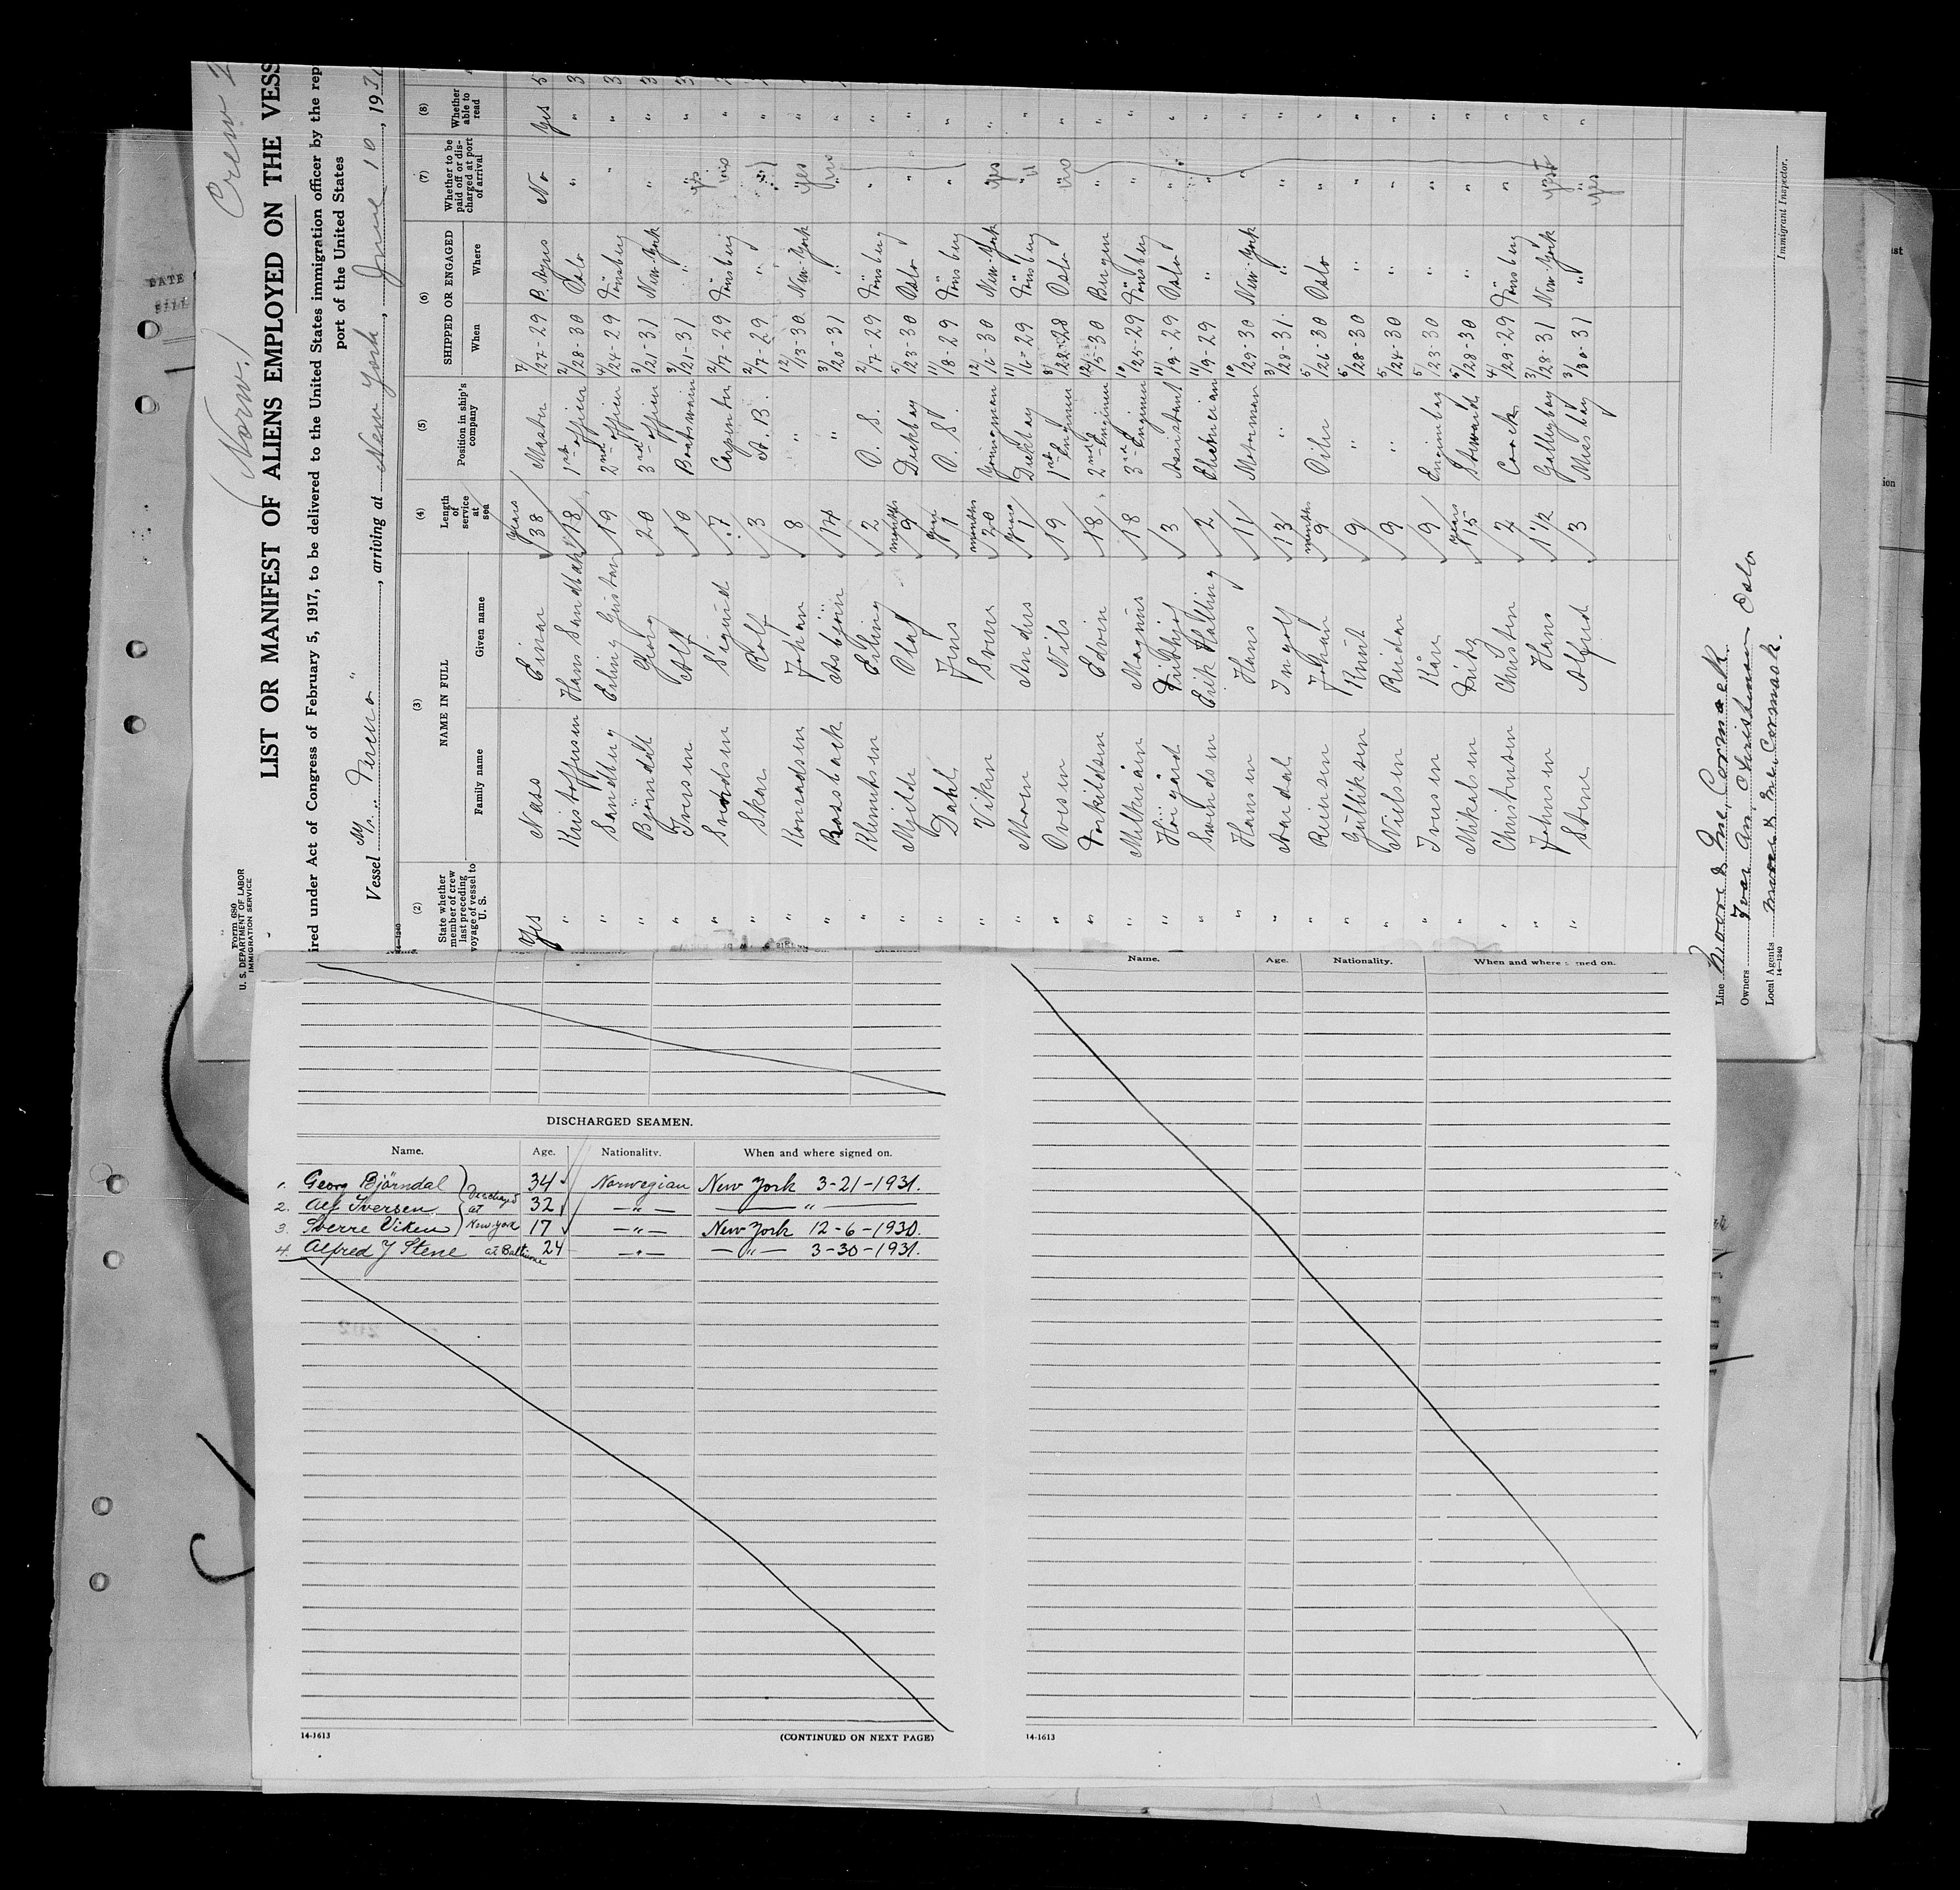 Norw. Crew 2
Form 680
U. S. DEPARTMENT OF LABOR
IMMIGRATION SERVICE
LIST OR MANIFEST OF ALIENS EMPLOYED ON THE VESS
ired under Act of Congress of February 5, 1917, to be delivered to the United States immigration officer by the rep
port of the United States
Vessel M/S. , arriving at New York, June 10, 1931
14-1240
(2) (3) (4) (5) (6) (7) (8)
State whether member of crew last preceding voyage of vessel to U. S. NAME IN FULL Length of service at sea Position in ship's company SHIPPED OR ENGAGED Whether to be paid off or discharged at port of arrival Whether able to read
Family name Given name When Where
Yes Nass Einar years 38 Master 7/27-29 B. Ayres No Yes 5
" Kristoffersen Hans Sandbak 18 1st officer 2/28-30 Oslo " " 3
" Sandberg Erling Gustav 19 2nd officer 4/24-29 Tönsberg " " 3
" Björndal Georg 20 3rd officer 3/21-31 New-York " " 3
" Iversen Alf 10 Boatswain 3/21-31 " yes " 3
" Svendsen Sigurd 7 Carpenter 2/17-29 Tönsberg "
" Skar Rolf 3 A.B. 2/17-29 " "
" Konradsen Johan 8 " 12/13-30 New-York yes "
" Rossbach Asbjörn 14 " 3/20-31 " "
" Klemetsen Erling 2 O. S. 2/17-29 Tönsberg " "
" Mjelde Olaf months 9 Deckboy 5/23-30 Oslo " "
" Dahl Jens year 1 O. S. 11/18-29 Tönsberg " "
" Viken Sverre months 20 Youngman 12/6-30 New-York yes "
" Moen Anders years 1 Deckboy 11/16-29 Tönsberg " "
" Ovesen Nils 19 1st Engineer 8/22-28 Oslo "
" Torkildsen Edvin 18 2nd Engineer 12/15-30 Bergen " "
" Magnus 18 3rd Engineer 10/25-29 Tönsberg " "
" Höigård Fridthjof 13 Assistant 11/19-29 Oslo " "
" Svendsen Erik Halling 2 Electrician 11/19-29 " " "
" Hansen Hans 11 Motorman 10/29-30 New-York " "
" Aardal Ingolf 13 " 3/28-31 " " "
" Reiersen Johan months 9 Oiler 5/26-30 Oslo " "
" Gulliksen Knut 9 " 5/28-30 " " "
" Nielsen Reidar 9 " 5/24-30 " " "
" Iversen Kåre 9 Engineboy 5/23-30 " " "
" Mikalsen Fritz years 15 Steward 5/28-30 " " "
" Christensen Christen 2 Coock 4/29-29 Tönsberg " "
" Johnsen Hans 1 1/2 Galleyboy 3/28-31 New-York yes "
" Stene Alfred 3 Messboy 3/30-31 " yes "
Line Moore & Mc. Cormack
Owners Ivar An. Christensen Oslo
Local Agents Moore & Mc. Cormack.
14-1240
Immigrant Inspector.
DISCHARGED SEAMEN.
Name. Age. Nationality. When and where signed on.
1. Georg Björndal 34 Norwegian New York 3-21-1931.
2. Alf Iversen 32 —"— —"—
3. Sverre Viken 17 —"— New York 12-6-1930.
Discharged at New York
4. Alfred J Stene at Baltimore 24 —"— —"— 3-30-1931.
14-1613
(CONTINUED ON NEXT PAGE)
Name. Age. Nationality. When and where signed on.
14-1613